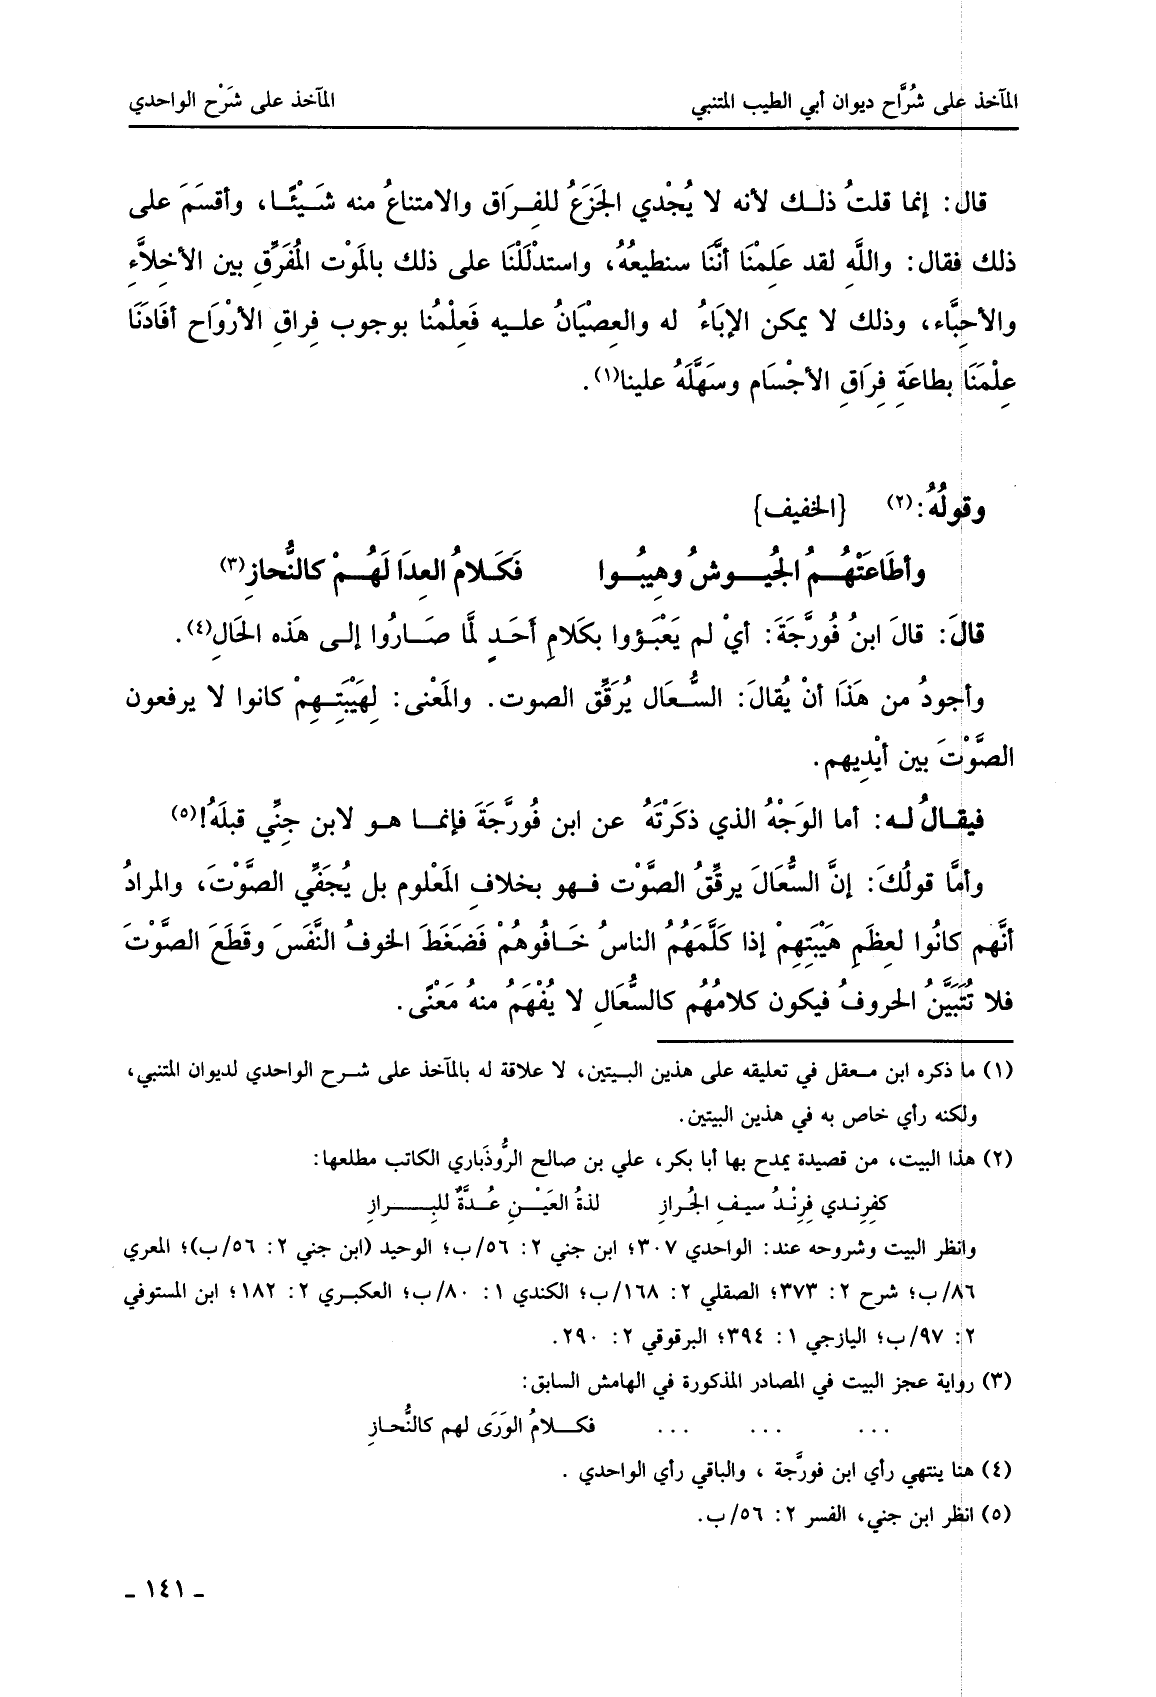 المآخذ على شُرَّاح ديوان أبي الطيب المتنبي المآخذ على شَرْح الواحدي
قال: إنما قلتُ ذلك لأنه لا يُجْدي الجَزَعُ للفِرَاق والامتناعُ منه شَيْئًا، وأقسَمَ على
ذلك فقال: واللَّهِ لقد عَلِمْنَا أنَّنَا سنطيعُهُ، واستدْلَلْنَا على ذلك بالمَوْت المُفَرِّقِ بين الأخلاَّءِ
والأحِبَّاء، وذلك لا يمكن الإبَاءُ له والعِصْيَانُ عليه فَعِلْمُنا بوجوب فِراقِ الأرْوَاح أفَادَنَا
عِلْمَنَا بطاعَةِ فِرَاقِ الأجْسَام وسَهَّلَهُ علينا(١).
وقولُهُ:(٢) {الخفيف}
وأطَاعَتْهُمُ الجُيوشُ وهِيبُوا فَكَلامُ العِدَا لَهُمْ كالنُّحازِ(٣)
قالَ: قالَ ابنُ فُورَّجَةَ: أيْ لم يَعْبَؤوا بكَلامِ أحَدٍ لمَّا صَارُوا إلى هَذه الحَالِ(٤).
وأجودُ من هَذَا أنْ يُقالَ: السُّعَال يُرَقِّق الصوت. والمَعْنى: لِهَيْبَتِهِمْ كانوا لا يرفعون
الصَّوْتَ بين أيْدِيهم.
فيقالُ له: أما الوَجْهُ الذي ذكَرْتَهُ عن ابن فُورَّجَةَ فإنما هو لابن جِنِّي قبلَهُ!(٥)
وأمَّا قولُكَ: إنَّ السُّعَالَ يرقِّقُ الصَّوْت فهو بخلافِ المَعْلوم بل يُجَفِّي الصَّوْتَ، والمرادُ
أنَّهم كانُوا لعِظَمِ هَيْبَتِهِمْ إذا كَلَّمَهُمُ الناسُ خَافُوهُمْ فَضَغَطَ الخوفُ النَّفَسَ وقَطَعَ الصَّوْتَ
فلا تُتَبَيَّنُ الحروفُ فيكون كلامُهُم كالسُّعَالِ لا يُفْهَمُ منهُ مَعْنًى.
(١) ما ذكره ابن معقل في تعليقه على هذين البيتين، لا علاقة له بالمآخذ على شرح الواحدي لديوان المتنبي،
ولكنه رأي خاص به في هذين البيتين.
(٢) هذا البيت، من قصيدة يمدح بها أبا بكر، علي بن صالح الرُّوذَباري الكاتب مطلعها:
كفِرِندي فِرِنْدُ سيفِ الجُرازِ لذةُ العَيْنِ عُدَّةٌ للبِرازِ
وانظر البيت وشروحه عند: الواحدي ٣٠٧؛ ابن جني ٢: ٥٦/ب؛ الوحيد (ابن جني ٢: ٥٦/ب)؛ المعري
٨٦/ب؛ شرح ٢: ٣٧٣؛ الصقلي ٢: ١٦٨/ب؛ الكندي ١: ٨٠/ب؛ العكبري ٢: ١٨٢؛ ابن المستوفي
٢: ٩٧/ب؛ اليازجي ١: ٣٩٤؛ البرقوقي ٢: ٢٩٠.
(٣) رواية عجز البيت في المصادر المذكورة في الهامش السابق:
... ... ... فكلامُ الوَرَى لهم كالنُّحازِ
(٤) هنا ينتهي رأي ابن فورَّجة ، والباقي رأي الواحدي .
(٥) انظر ابن جني، الفسر ٢: ٥٦/ب.
ـ ١٤١ ـ